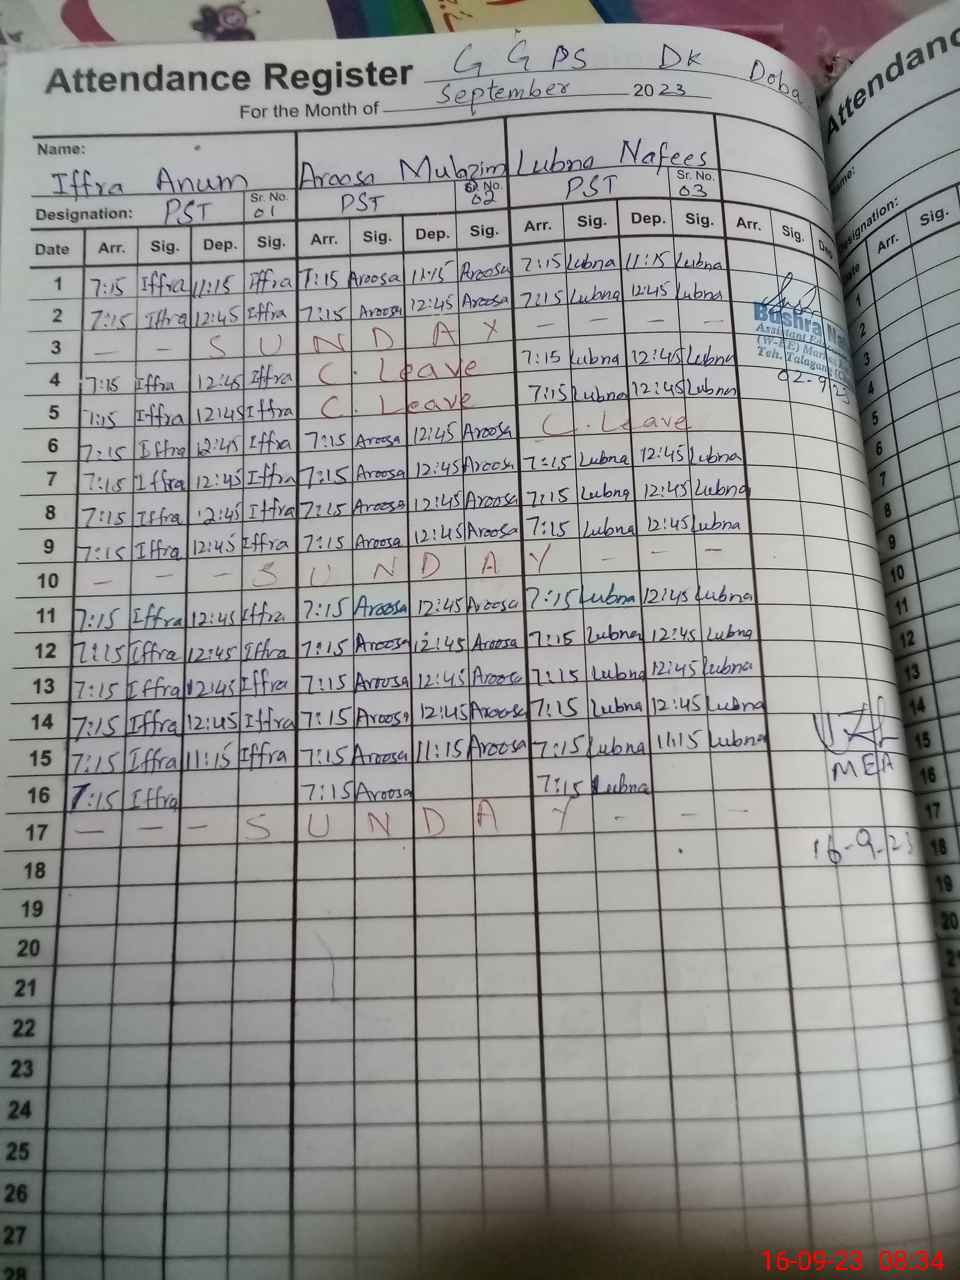 Attendance Register G G PS DK Doba
For the Month of September 2023
Name: Iffra Anum Aroosa Mulazim Lubna Nafees
Designation: PST Sr. No. 01 PST Sr. No. 02 PST Sr. No. 03
Date Arr. Sig. Dep. Sig. Arr. Sig. Dep. Sig. Arr. Sig. Dep. Sig. Arr. Sig. Dep
1 7:15 Iffra 11:15 Iffra 7:15 Aroosa 11:15 Aroosa 7:15 Lubna 11:15 Lubna
2 7:15 Iffra 12:45 Iffra 7:15 Aroosa 12:45 Aroosa 7:15 Lubna 12:45 Lubna
3 — — S U N D A Y — — — —
4 7:15 Iffra 12:45 Iffra C. Leave 7:15 Lubna 12:45 Lubna
5 7:15 Iffra 12:45 Iffra C. Leave 7:15 Lubna 12:45 Lubna
6 7:15 Iffra 12:45 Iffra 7:15 Aroosa 12:45 Aroosa C. Leave
7 7:15 Iffra 12:45 Iffra 7:15 Aroosa 12:45 Aroosa 7:15 Lubna 12:45 Lubna
8 7:15 Iffra 12:45 Iffra 7:15 Aroosa 12:45 Aroosa 7:15 Lubna 12:45 Lubna
9 7:15 Iffra 12:45 Iffra 7:15 Aroosa 12:45 Aroosa 7:15 Lubna 12:45 Lubna
10 — — — S U N D A Y — — —
11 7:15 Iffra 12:45 Iffra 7:15 Aroosa 12:45 Aroosa 7:15 Lubna 12:45 Lubna
12 7:15 Iffra 12:45 Iffra 7:15 Aroosa 12:45 Aroosa 7:15 Lubna 12:45 Lubna
13 7:15 Iffra 12:45 Iffra 7:15 Aroosa 12:45 Aroosa 7:15 Lubna 12:45 Lubna
14 7:15 Iffra 12:45 Iffra 7:15 Aroosa 12:45 Aroosa 7:15 Lubna 12:45 Lubna
15 7:15 Iffra 11:15 Iffra 7:15 Aroosa 11:15 Aroosa 7:15 Lubna 11:15 Lubna
16 7:15 Iffra 7:15 Aroosa 7:15 Lubna
17 — — — S U N D A Y — — —
18
19
20
21
22
23
24
25
26
27
28
Bushra Na
Assistant
(W-EE)
Teh. Talagang
02-9-23
MEA
16-9-23
Attendanc
Arr. Sig.
1
2
3
4
5
6
7
8
9
10
11
12
13
14
15
16
17
18
19
20
16-09-23 08:34